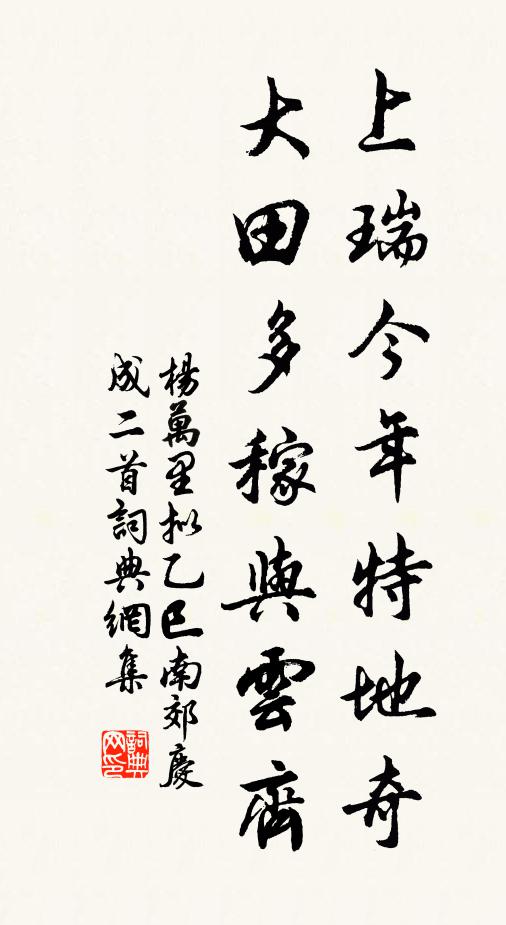 上瑞今年特地奇
大田多稼與雲齊
楊萬里拟乙巳南郊慶
成二首詞典網集
詞典
网印